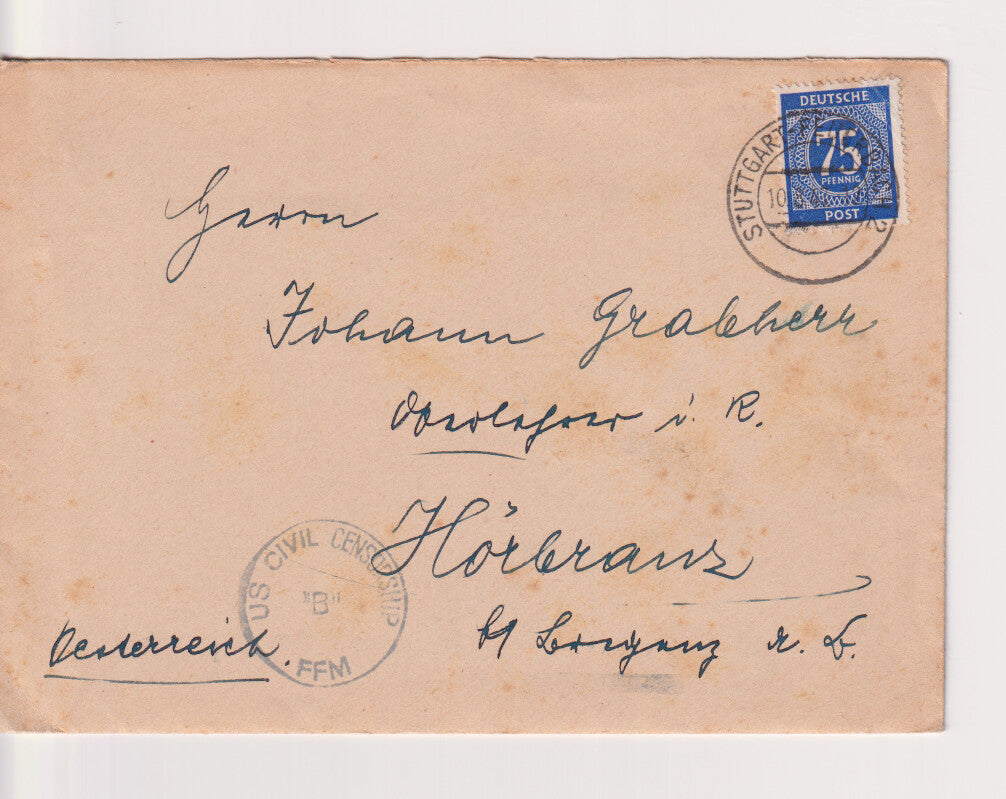 DEUTSCHE
75
PFENNIG
POST
STUTTGART
10
Herrn
Johann Grabherr
Oberlehrer i. R.
Hörbranz
b/ Bregenz a. B.
Oesterreich.
US CIVIL CENSORSHIP
"B"
FFM